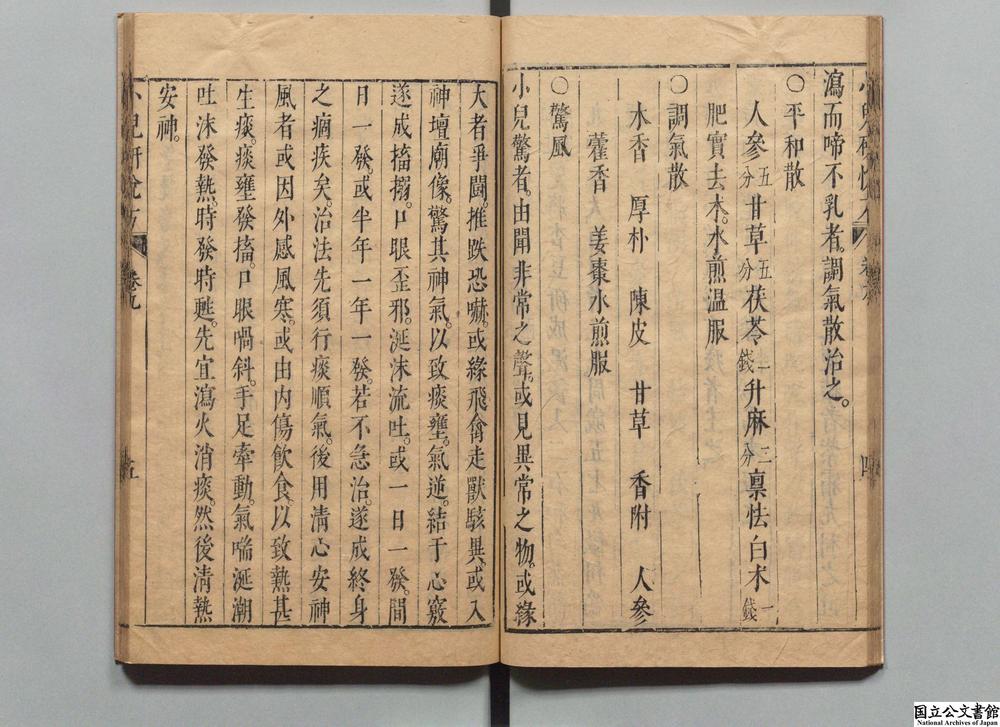 瀉而啼不乳者。調氣散治之。
〇平和散
人參五分甘草五分茯苓一錢升麻二分稟怯白术一錢
肥實去术。水煎温服
〇調氣散
木香 厚朴 陳皮 甘草 香附 人參
藿香 姜棗水煎服
〇驚風
小兒驚者。由聞非常之聲。或見異常之物。或緣
大者爭鬪。推跌恐嚇。或緣飛禽走獸駭異。或入
神壇廟像。驚其神氣。以致痰壅。氣逆。結于心竅
遂成搐搦。口眼歪邪。涎沫流吐。或一日一發。間
日一發。或半年一年一發。若不急治。遂成終身
之痼疾矣治法先須行痰順氣。後用清心安神
風者或因外感風寒。或由內傷飲食。以致熱甚
生痰。痰壅發搐。口眼喎斜。手足牽動。氣喘涎潮
吐沫發熱。時發時甦。先宜瀉火消痰。然後清熱
安神。
卷九
五
国立公文書館
National Archives of Japan